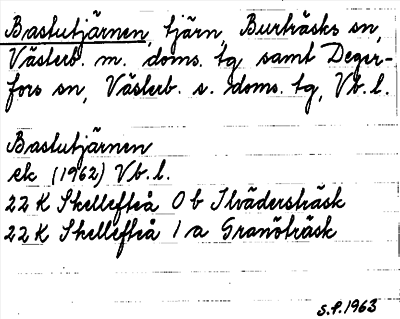 Bastutjärnen, tjärn, Burträsks sn,
Västerb. m. doms. tg samt Deger-
fors sn, Västerb. s. doms. tg, Vb.l.
Bastutjärnen
ek (1962) Vb.l.
22 K Skellefteå 0 b Ilvädersträsk
22 K Skellefteå 1 a Granöträsk
S.P. 1963